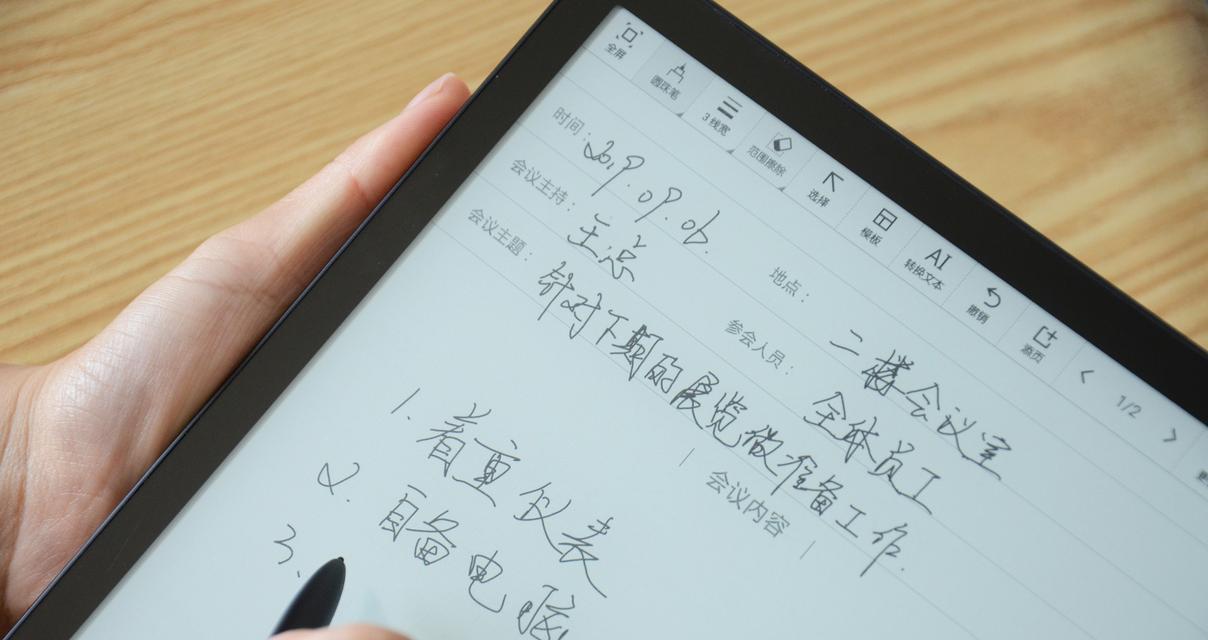 全屏 圆珠笔 3 线宽 范围擦除 选择 模板 AI 转换文本 撤销 添页 < 1/2 >
时间： 2019.09.06. 地点： 二楼会议室
会议主持： 王总 参会人员： 全体员工
会议主题： 针对下期的展览做准备工作.
| 会议内容 |
1. 着重仪表
2. 自备电脑
3.